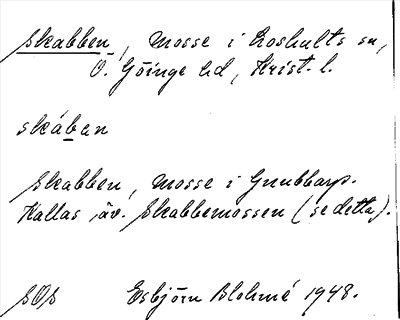 Skabben, mosse i Loshults sn,
Ö. Göinge hd, Krist. l.
skában
Skabben, mosse i Gnubbarp.
Kallas äv. Skabbemossen (se detta).
SOs Esbjörn Blohmé 1948.